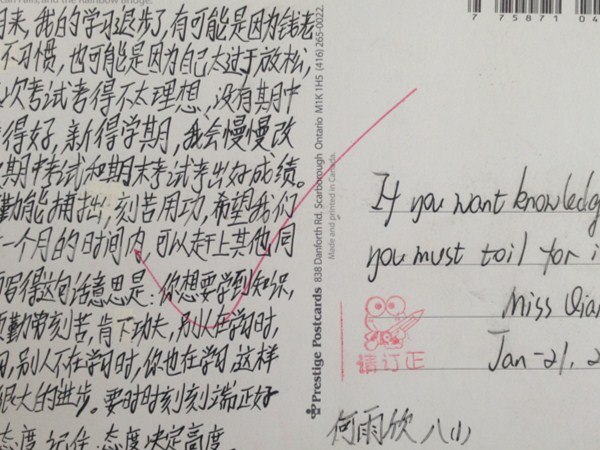 an Falls, and the Rainbow Bridge.
月来，我的学习退步了，有可能是因为钱老
不习惯，也可能是因为自己太过于放松，
次考试考得不太理想，没有期中
得好，新得学期，我会慢慢改
期中考试和期末考试考出好成绩。
勤能捕拙，刻苦用功，希望我们
一个月的时间内，可以赶上其他同
写得这句话意思是：你想要学到知识，
勤劳刻苦，肯下功夫，别人在学习时，
别人不在学习时，你也在学习，这样
很大的进步。要时时刻刻端正好
态度，记住，态度决定高度。
Prestige Postcards 838 Danforth Rd. Scarborough Ontario M1K 1H5 (416) 265-0022
Made and printed in Canada.
7 75871 04
If you want knowledg
you must toil for i
Miss Qia
Jan-21, 2
请订正
何雨欣 八(1)